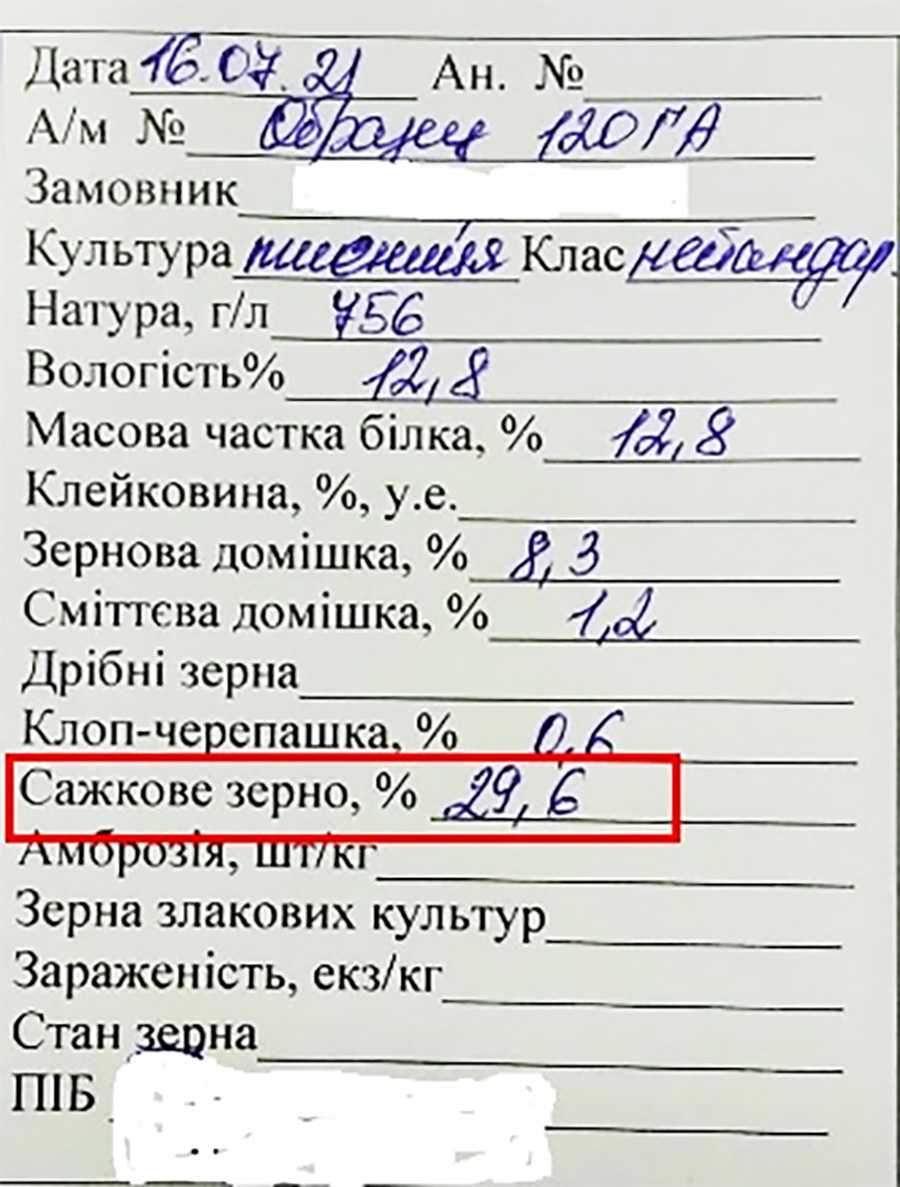 Дата 16.07.21 Ан. №
А/м № Образец 120 ГА
Замовник
Культура пшениця Клас нестандар.
Натура, г/л 756
Вологість% 12,8
Масова частка білка, % 12,8
Клейковина, %, у.е.
Зернова домішка, % 8,3
Сміттєва домішка, % 1,2
Дрібні зерна
Клоп-черепашка, % 0,6
Сажкове зерно, % 29,6
Амброзія, шт/кг
Зерна злакових культур
Зараженість, екз/кг
Стан зерна
ПІБ